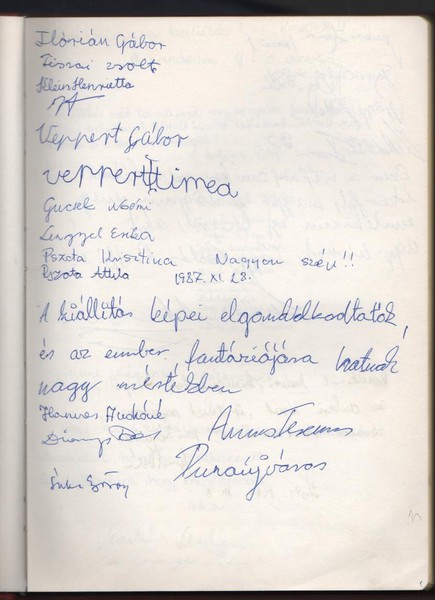 Flórián Gábor
Tiszai Zsolt
Klein Henrietta
Veppert Gábor
veppert Timea
Gucsek Noémi
Lengyel Erika
Pszota Krisztina Nagyon szép!!
Pszota Attila 1987. XI. 28.
A kiállítás képei elgondolkodtatók,
és az ember fantáziájára hatnak
nagy mértékben
Dunaújváros